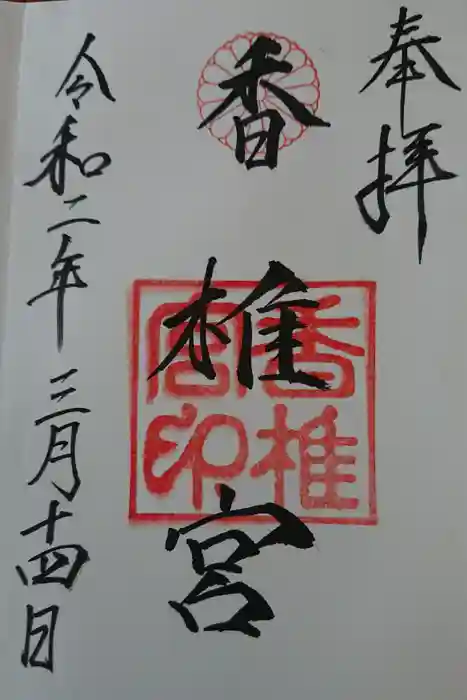 奉拝
香椎宮
香椎宮印
令和二年三月十四日